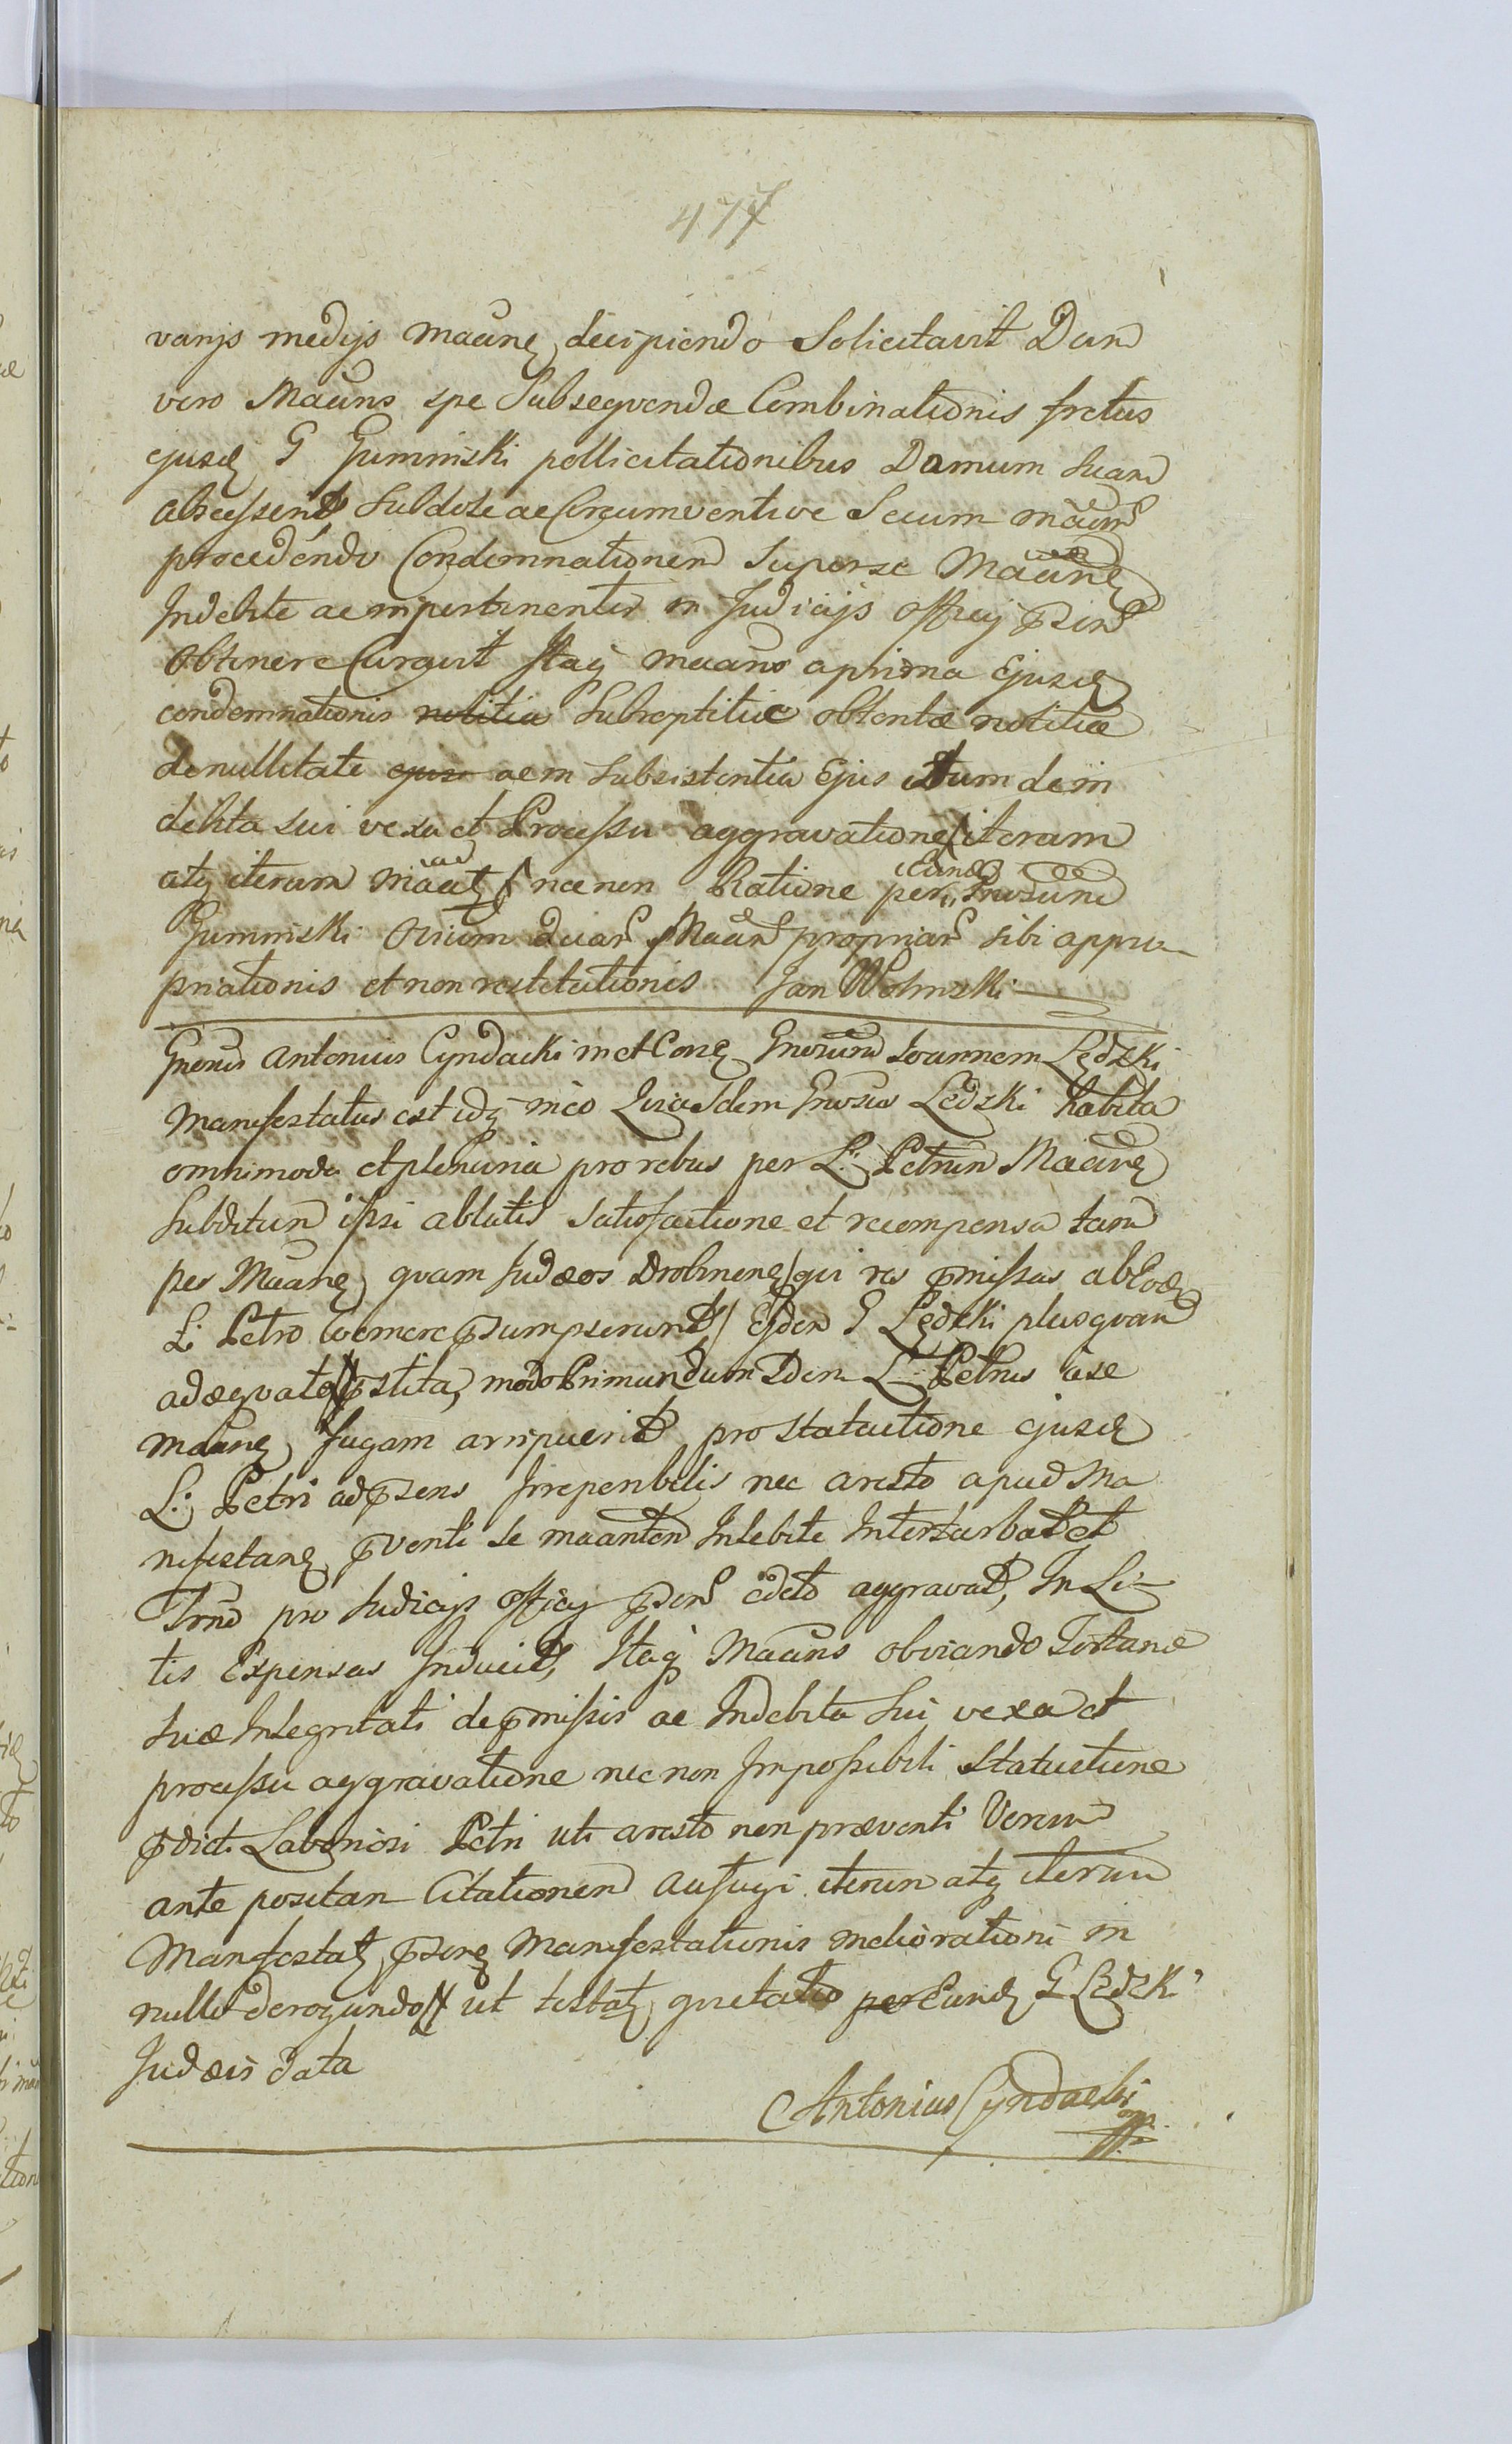 477
varijs medijs maãnẽ decipiendo Solicitavit Dum
vero Maãns spe Subsequendæ Combinationis fretus
ejusd G Guminski pollicitationibus Domum suam
abscesserit Subdole ac Circumventive Secum maãm
procedendo Condemnationem Super se Maãnẽ
Indebite ac impertinenter in Judicijs officij pñsm
obtinere Curavit Itaq maãns a prima Ejusd
condemnationis notitia Subreptitiæ obtentæ notitia
de nullitate ejus ac in Subsistentia Ejus itum de in
debita sui vexa et Processu aggravatione iterum
atq iterum maãt nec non Ratione per Eund Gnosum
Guminski Ovium duar Maãn propriar sibi appro
priationis et non restitutionis Jan Wolinski
Gnosus Antonius Cyndacki in et Contrẽ Gnosum Joannem Lędzki
Manifestatus est idq in eo Quia Idem Gnosus Lędzki habita
omnimoda et plenaria pro rebus per L: Petrum Maãnẽ
Subditum ipsi ablatis satisfactione et recompensa tam
per Maãnẽ quam Judæos Drobinenẽ qui res pmissas ab Eod
L: Petro temere psumpserunt Ejdem G Lędzki plusquam
adæquate pstita, modo Primum dum Idem L: Petrus a se
maãnẽ fugam arripuerit pro statuitione ejusd
L: Petri ad psens Irreperibilis nec aresto apud Ma
nifestanẽ pventi se maãntem Indebite Interturbat et
Trno pro Judicijs officij psen edito aggravat, In Li
tis Expensas Inducit, Itaq Maãns obviando Fortunæ
suæ Integritati de pmissis ac Indebita sui vexa et
processu aggravatione nec non Impossibili Statuitione
pdicti Laboriosi Petri uti aresto non præventi Verum
ante positam Citationem aufugi iterum atq iterum
Manifestat, psenẽ Manifestationis meliorationi in
nullo derogando ut testat quietatio per Eund G Lędzki
Judæis data
Antonius Cyndacki mpp